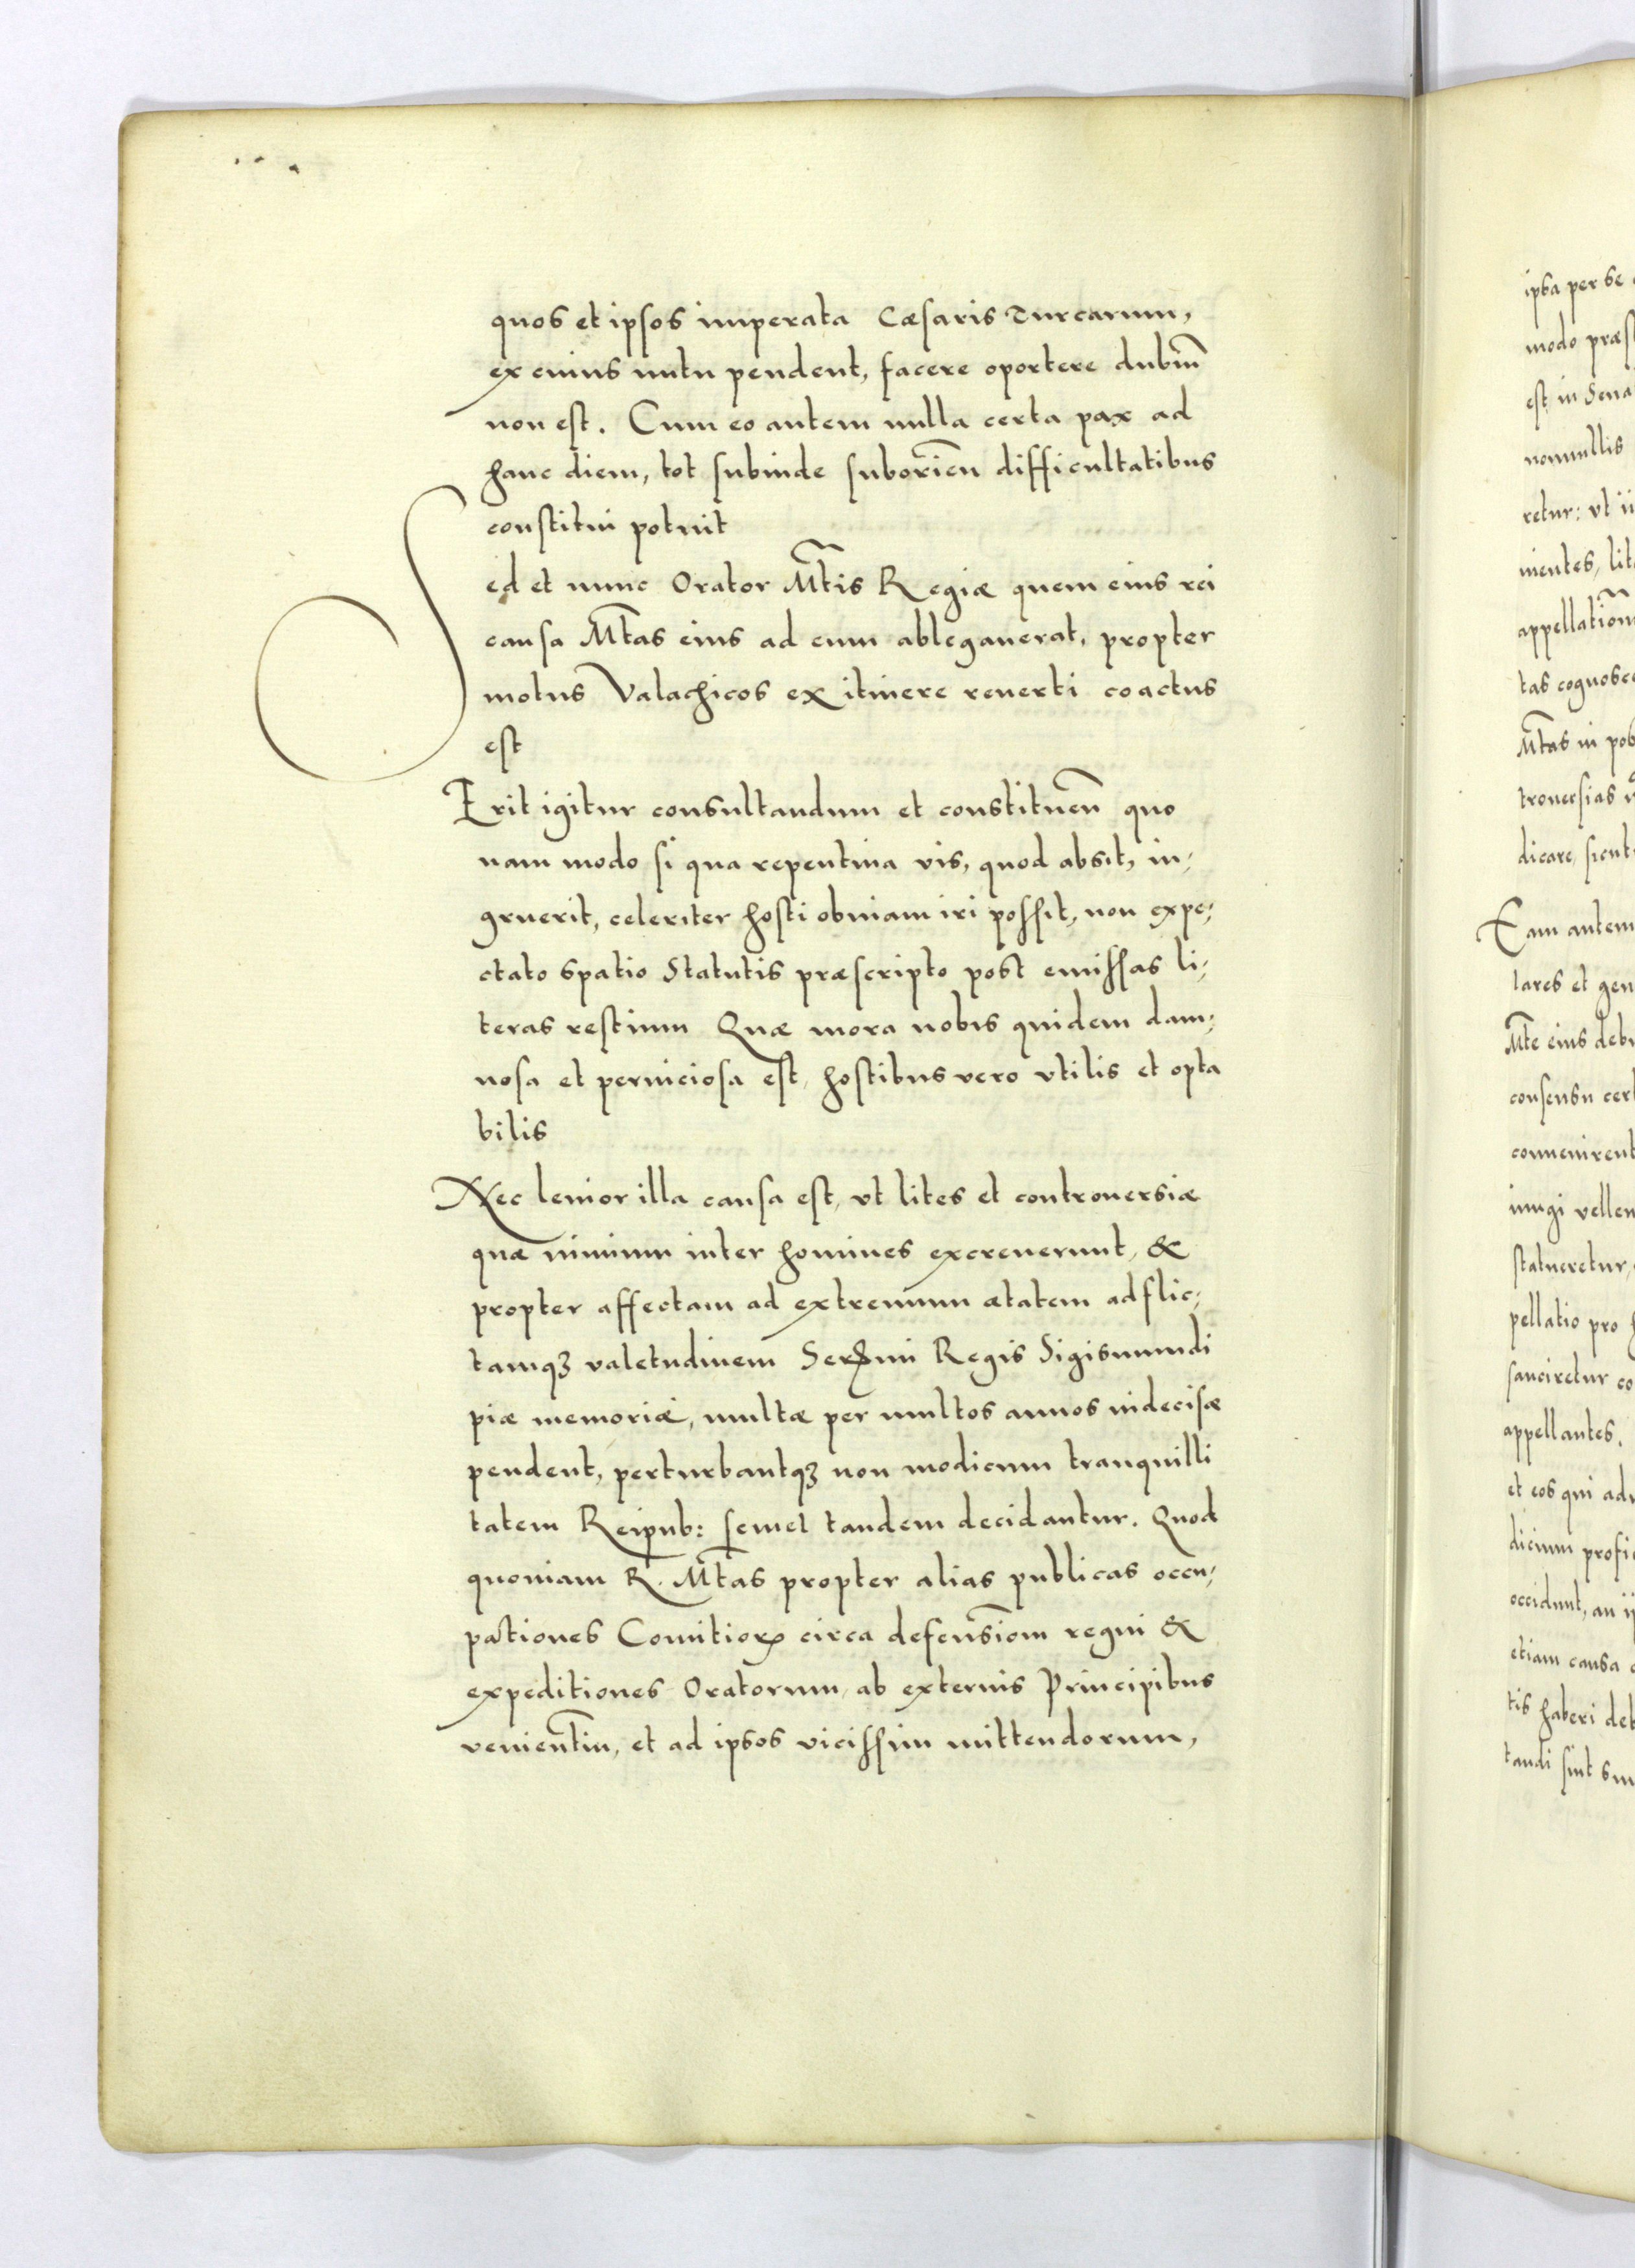 quos et ipsos imperata Cæsaris Turcarum,
ex cuius nutu pendent, facere oportere dubiu̅
non est. Cum eo autem nulla certa pax ad
hanc diem, tot subinde suborien̅ difficultatibus
constitui potuit
Sed et nunc Orator Mt̅is Regiæ quem eius rei
causa Mt̅as eius ad eum ablegauerat, propter
motus Valachicos ex itinere reuerti coactus
est
Erit igitur consultandum et constituen̅ quo
nam modo si qua repentina vis, quod absit, in-
gruerit, celeriter hosti obuiam iri possit, non expe-
ctato spatio Statutis præscripto post emissas li-
teras restium Quæ mora nobis quidem dam-
nosa et perniciosa est, hostibus vero vtilis et opta
bilis
Nec leuior illa causa est, vt lites et controuersiæ
quæ nimium inter homines excreuerunt, &
propter affectam ad extremum ætatem adflic-
tamqꝫ valetudinem Regis Sigismundi
piæ memoriæ, multæ per multos annos indecisæ
pendent, perturbantqꝫ non modicum tranquilli
tatem Reipub: semel tandem decidantur. Quod
quoniam R. Mt̅as propter alias publicas occu-
pationes Comitioꝝ circa defensio̅m regni &
expeditiones Oratorum, ab externis Principibus
venientiu̅, et ad ipsos vicissim mittendorum,
ipsa per se
modo præs
est, in Sena
nonnullis
retur: vt ii
nientes, lit
appellation̅
tas cognosce
Mt̅as in pos
trouersias
dicare, sicut
Eam autem
lares et gen
Mt̅e eius deb
consensu cer
conuenirent
iungi vellen
statueretur,
pellatio pro
sanciretur co
appellantes.
et eos qui ad
dicium profi
occidunt, an ij
etiam causa
tis haberi deb
tandi sint su